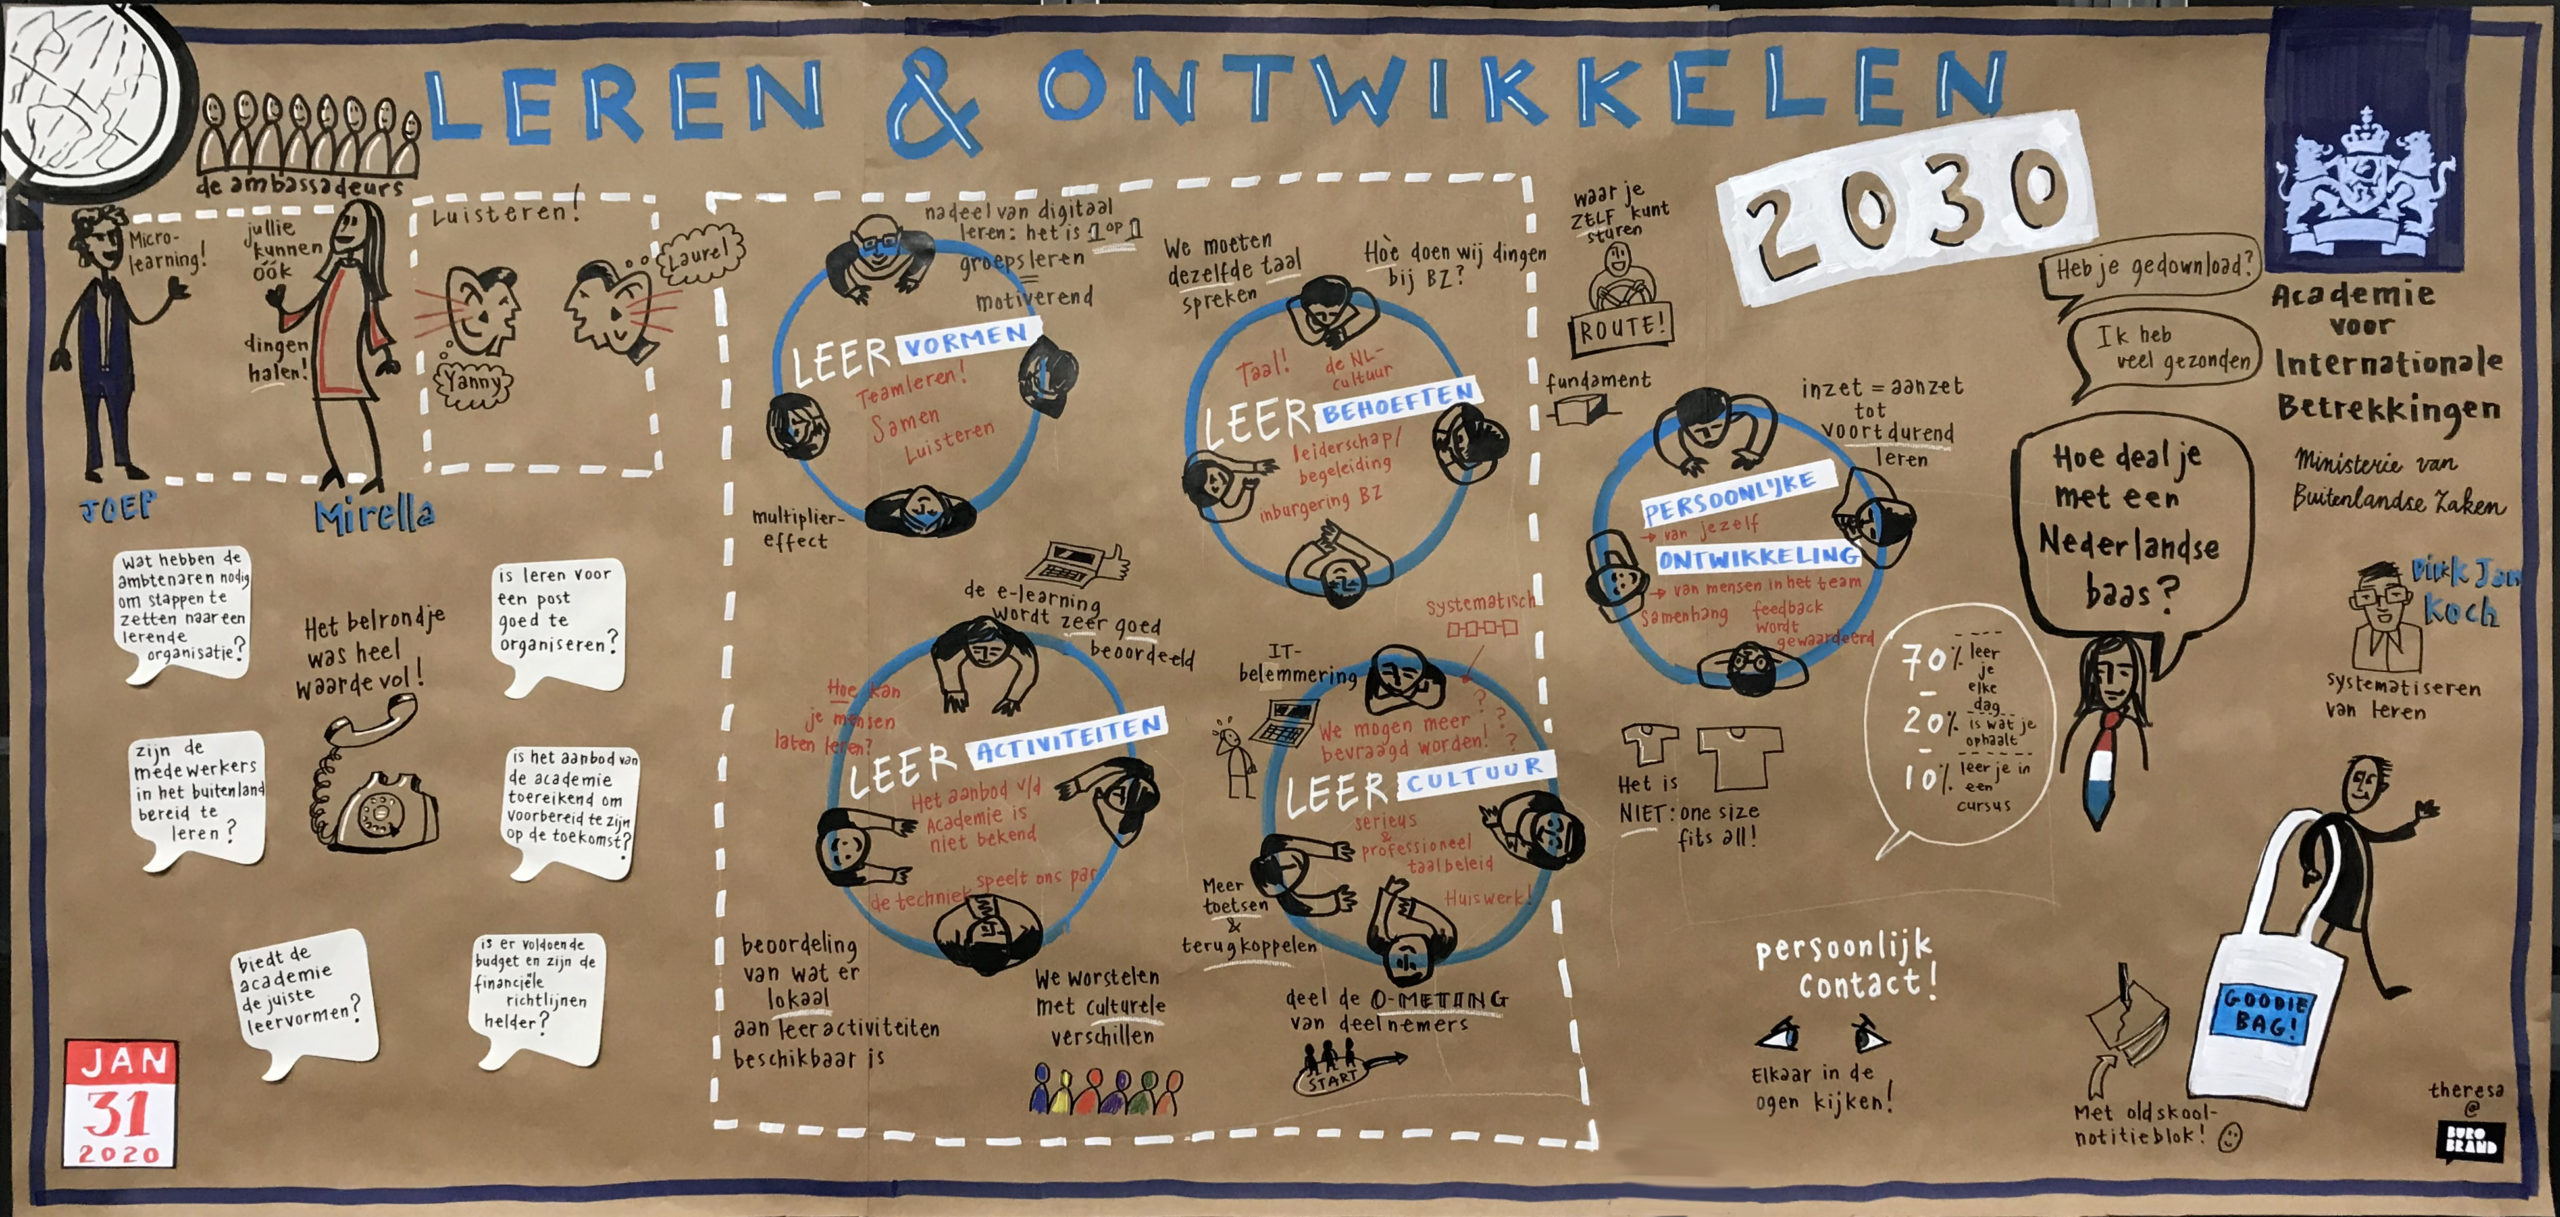 LEREN & ONTWIKKELEN
2030
de ambassadeurs
Micro-
learning!
jullie
kunnen
óók
dingen
halen!
JOEP
Mirella
Luisteren!
Laurel
Yanny
wat hebben de
ambtenaren nodig
om stappen te
zetten naar een
lerende
organisatie?
is leren voor
een post
goed te
organiseren?
Het belrondje
was heel
waardevol!
zijn de
medewerkers
in het buitenland
bereid te
leren?
is het aanbod van
de academie
toereikend om
voorbereid te zijn
op de toekomst?
biedt de
academie
de juiste
leervormen?
is er voldoende
budget en zijn de
financiële
richtlijnen
helder?
JAN
31
2020
nadeel van digitaal
leren: het is 1 op 1
groepsleren
=
motiverend
LEER VORMEN
Teamleren!
Samen
Luisteren
multiplier-
effect
We moeten
dezelfde taal
spreken
Hoè doen wij dingen
bij BZ?
Taal!
de NL-
cultuur
LEER BEHOEFTEN
leiderschap/
begeleiding
inburgering BZ
de e-learning
wordt zeer goed
beoordeeld
Hoe kan
je mensen
laten leren?
LEER ACTIVITEITEN
Het aanbod v/d
Academie is
niet bekend
de techniek speelt ons par
beoordeling
van wat er
lokaal
aan leeractiviteiten
beschikbaar is
We worstelen
met culturele
verschillen
systematisch
IT-
belemmering
We mogen meer
bevraagd worden!
? ? ? ?
LEER CULTUUR
serieus
&
professioneel
taalbeleid
Huiswerk!
Meer
toetsen
&
terugkoppelen
deel de 0-METING
van deelnemers
START
waar je
ZELF kunt
sturen
ROUTE!
fundament
inzet = aanzet
tot
voortdurend
leren
PERSOONLIJKE
→ van jezelf
ONTWIKKELING
→ van mensen in het team
Samenhang
feedback
wordt
gewaardeerd
Het is
NIET: one size
fits all!
70% leer
je
elke
dag
20% is wat je
ophaalt
10% leer je in
een
cursus
persoonlijk
contact!
Elkaar in de
ogen kijken!
Heb je gedownload?
Ik heb
veel gezonden
Hoe deal je
met een
Nederlandse
baas?
Academie
voor
Internationale
Betrekkingen
Ministerie van
Buitenlandse Zaken
Dirk Jan
Koch
systematiseren
van leren
GOODIE
BAG!
Met oldskool-
notitieblok!
theresa
@
BURO
BRAND